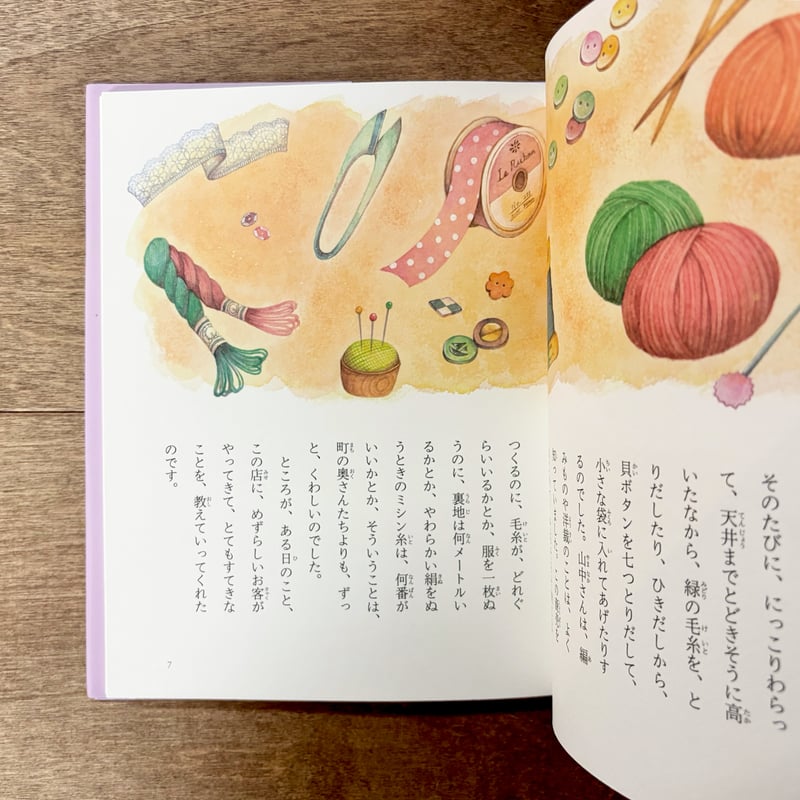 そのたびに、にっこりわらっ
て、天井までとどきそうに高
いたなから、緑の毛糸を、と
りだしたり、ひきだしから、
貝ボタンを七つとりだして、
小さな袋に入れてあげたりす
るのでした。山中さんは、編
みものや洋裁のことは、よく
知っていました。
つくるのに、毛糸が、どれぐ
らいいるかとか、服を一枚ぬ
うのに、裏地は何メートルい
るかとか、やわらかい絹をぬ
うときのミシン糸は、何番が
いいかとか、そういうことは、
町の奥さんたちよりも、ずっ
と、くわしいのでした。
ところが、ある日のこと、
この店に、めずらしいお客が
やってきて、とてもすてきな
ことを、教えていってくれた
のです。
7
Le